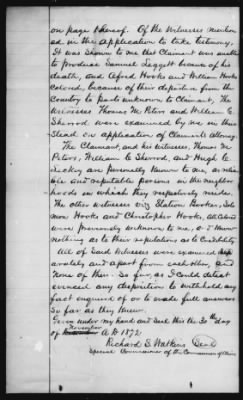 on page 1 hereof. Of the Witnesses mention
ed in the application to take testimony,
It was shown to me that Claimant was unable
to produce Samuel Leggett because of his
death, and Alford Hooks and William Hooks
Colored, because of their departure from the
Country to parts unknown to Claimant. The
Witnesses Thomas M. Peters and William E.
Sherrod, were examined by me in their
Stead on application of Claimants Attorney.
The Claimant, and his witnesses, Thomas M.
Peters, William E. Sherrod, and Hugh C.
are personally known to me, as relia
ble and reputable persons in the neighbor
hoods in which they respectively reside.
The other witnesses viz Station Booker, Solo
mon Hooks and Christopher Hooks, all Colored
were previously unknown to me, & I know
nothing as to their reputations as to Credibility
All of said Witnesses were examined sep
arately and apart from each other, and
None of them, So far, as I could detect
evinced any disposition to withhold any
fact enquired of or to make full answers
So far as they knew.
Given under my hand and Seal this the 30th day
of November A D 1872
Richard S. Watkins Seal
Special Commissioner of the Commissioners of Claims